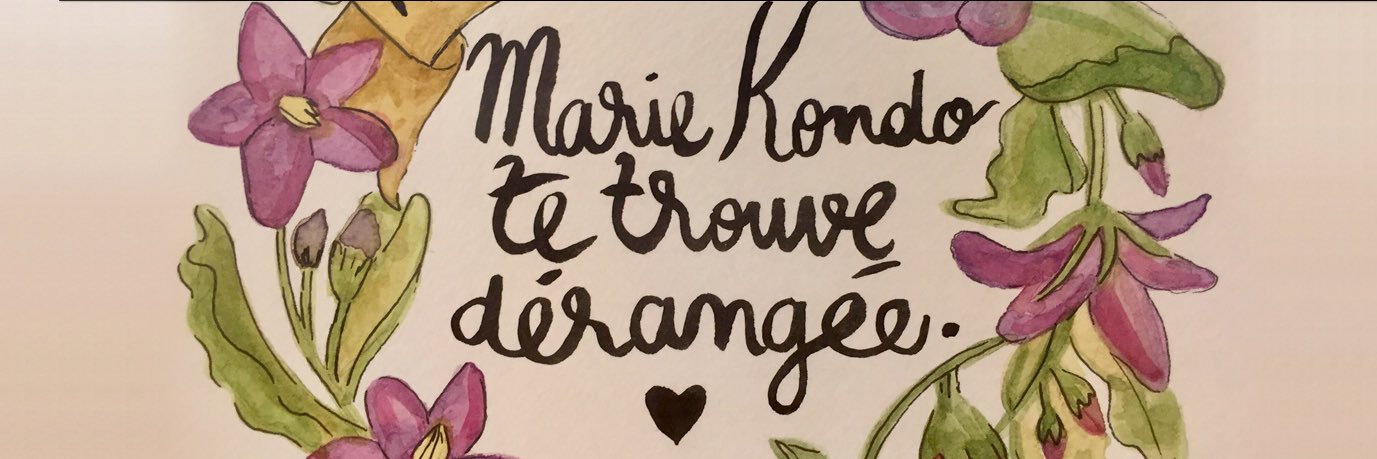 Marie Kondo
te trouve
dérangée.